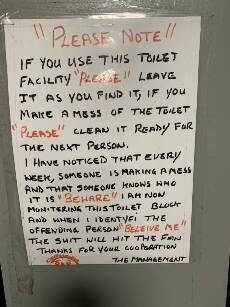 "PLEASE NOTE"
IF YOU USE THIS TOILET
FACILITY "PLEASE" LEAVE
IT AS YOU FIND IT, IF YOU
MAKE A MESS OF THE TOILET
"PLEASE" CLEAN IT READY FOR
THE NEXT PERSON.
I HAVE NOTICED THAT EVERY
WEEK, SOMEONE IS MAKING A MESS
AND THAT SOMEONE KNOWS WHO
IT IS "BEWARE" I AM NOW
MONITERING THIS TOILET BLOCK
AND WHEN I IDENTYFI THE
OFFENDING PERSON "BELEIVE ME"
THE SHIT WILL HIT THE FAN
THANKS FOR YOUR COOPORATION
THE MANAGEMENT